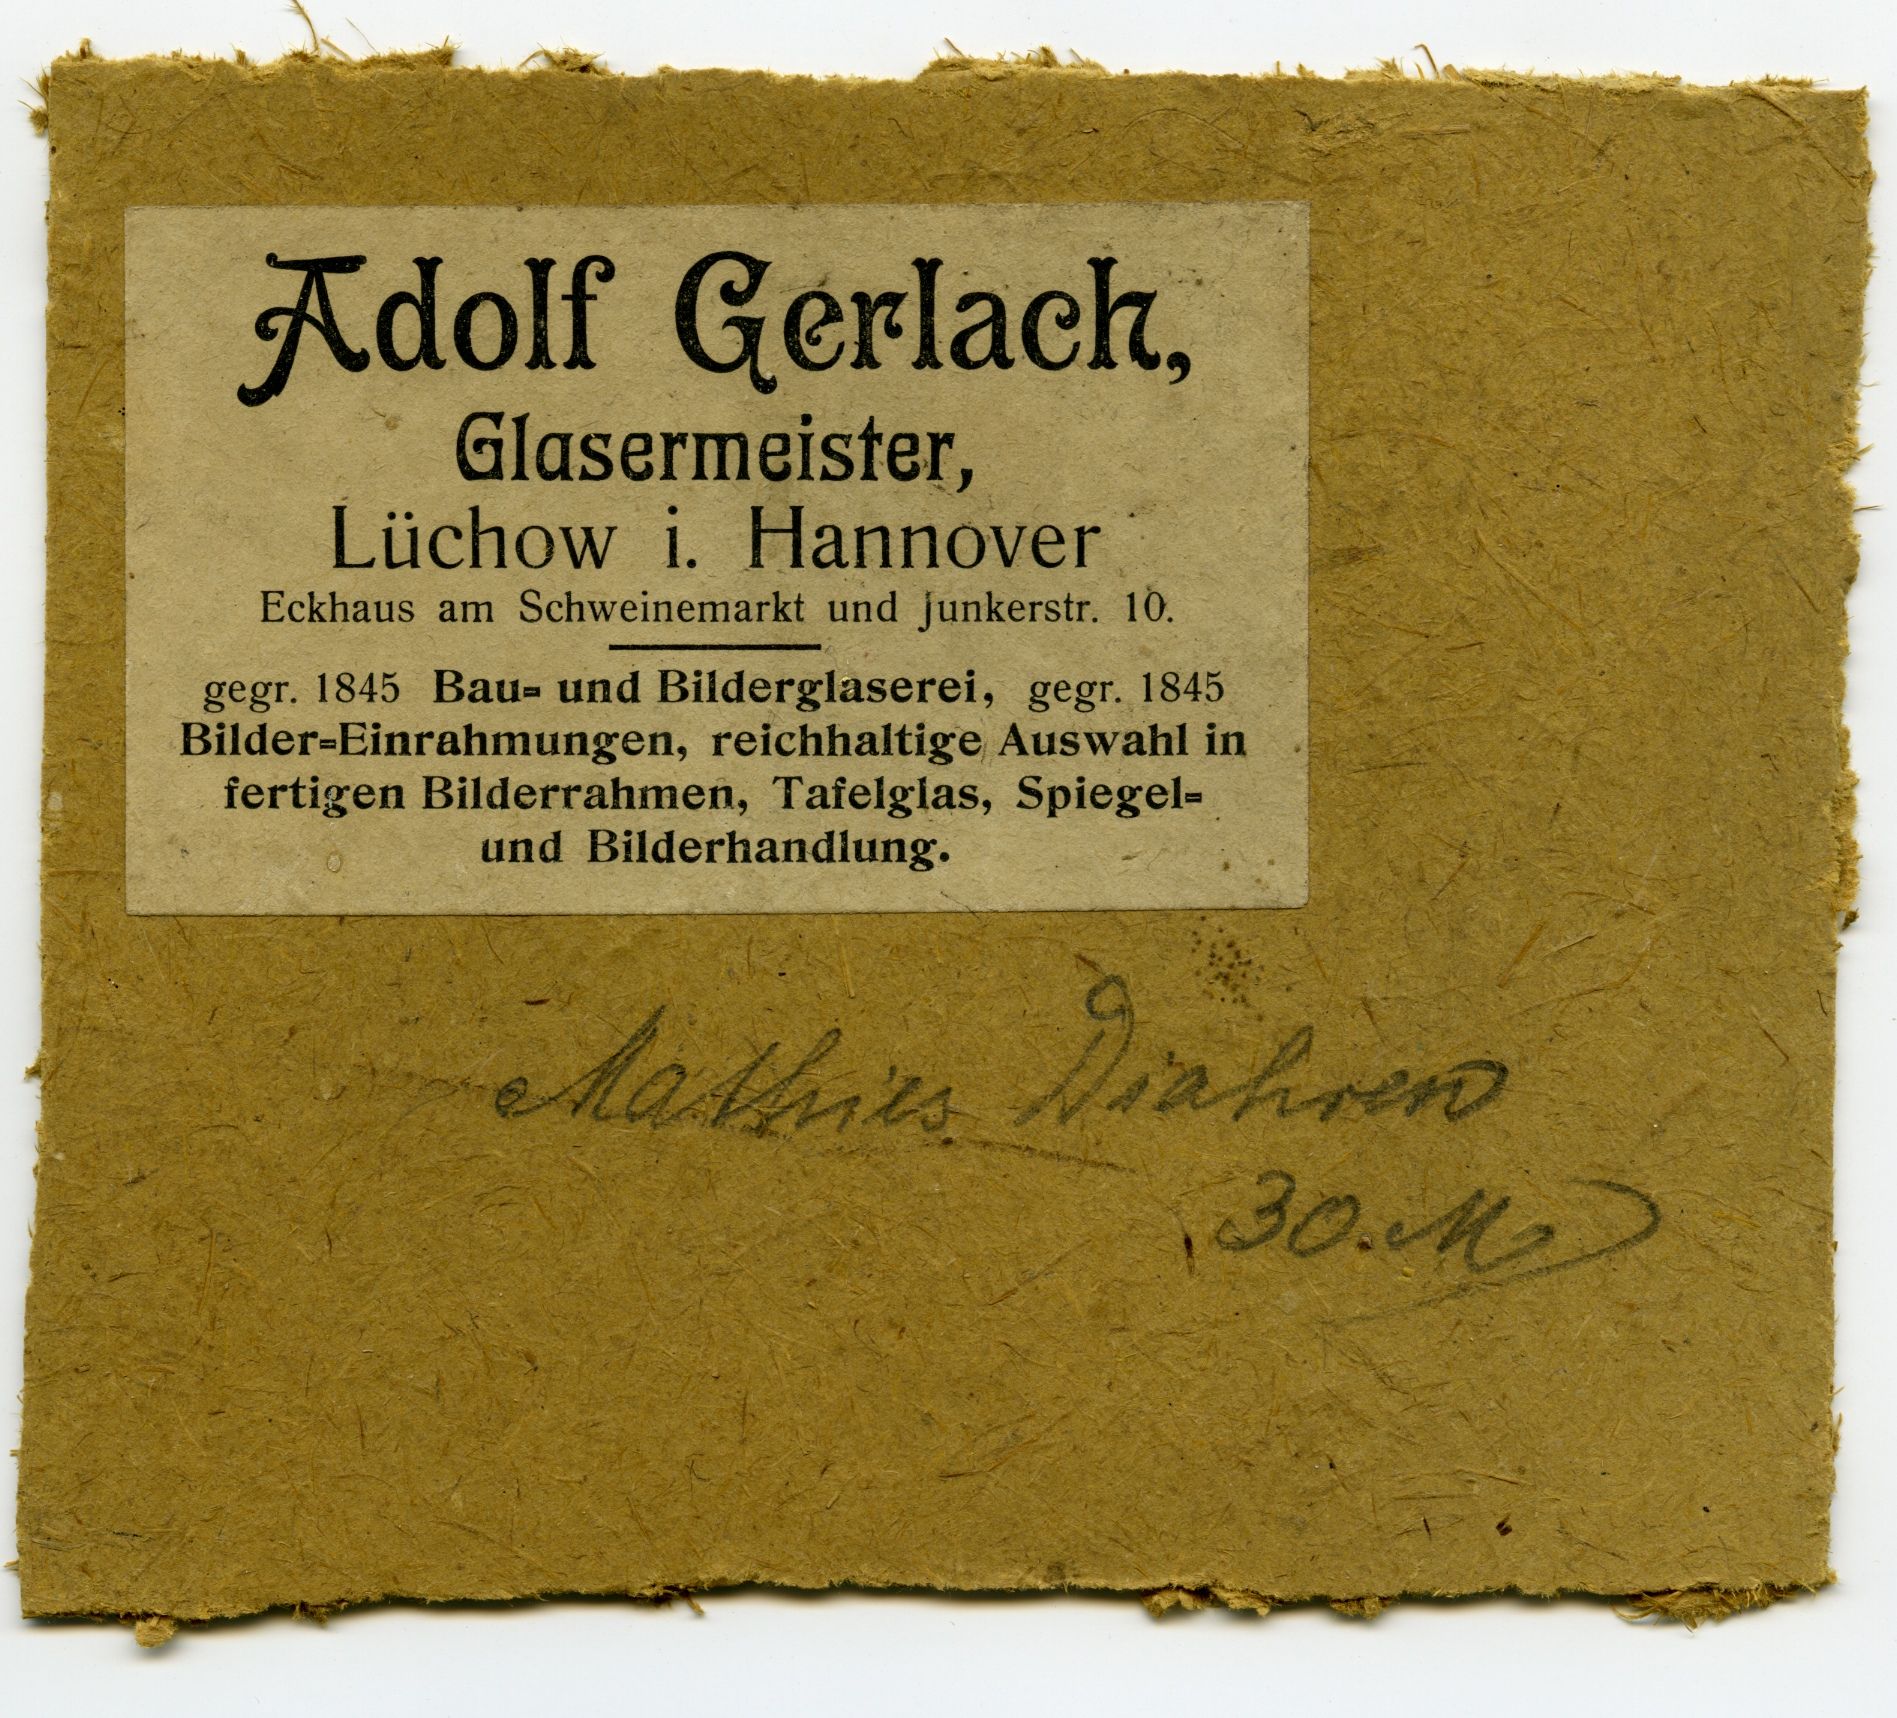 Adolf Gerlach,
Glasermeister,
Lüchow i. Hannover
Eckhaus am Schweinemarkt und Junkerstr. 10.
gegr. 1845 Bau- und Bilderglaserei, gegr. 1845
Bilder-Einrahmungen, reichhaltige Auswahl in
fertigen Bilderrahmen, Tafelglas, Spiegel-
und Bilderhandlung.
Mathies Diahren
30. M